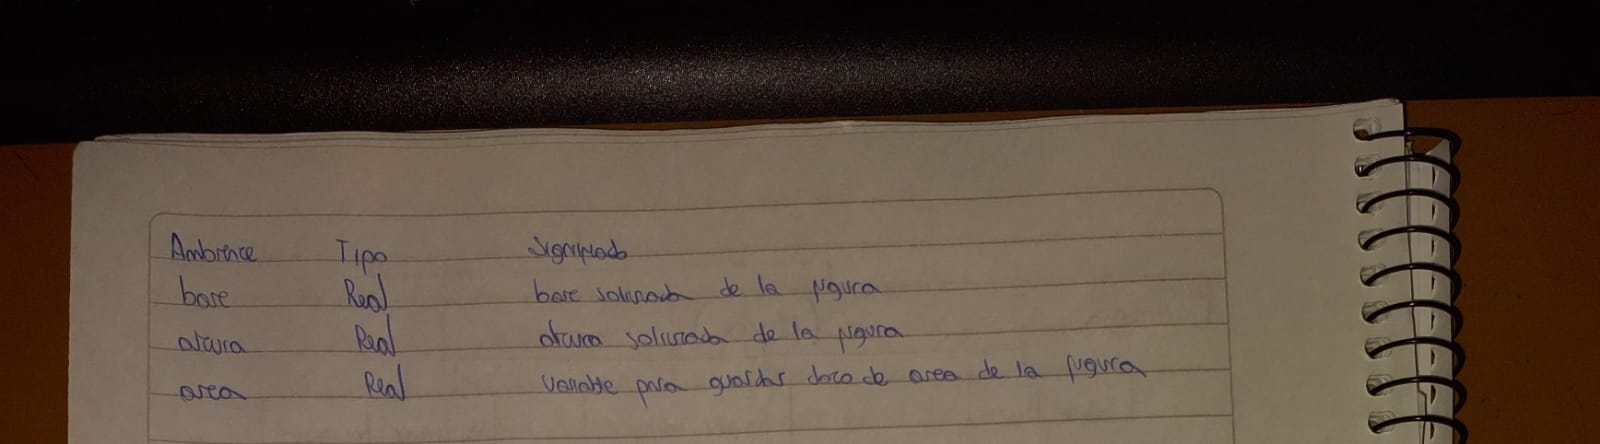 Ambiente Tipo Significado
base Real base solicitada de la figura
altura Real altura solicitada de la figura
area Real variable para guardar dato de area de la figura